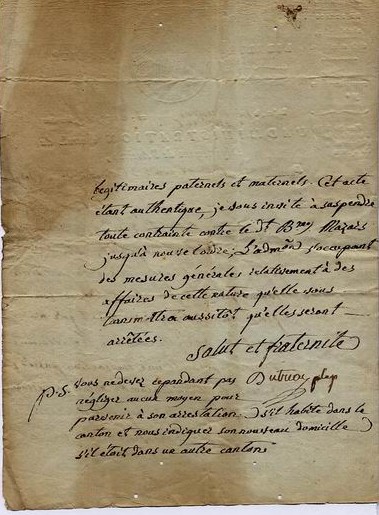 légitimaires paternels et maternels. Cet acte
étant authentique, je vous invite à suspendre
toute contrainte contre le dt Bmy Mazars
jusqu'à nouvel ordre; L'admõn s'occupant
des mesures générales relativement à des
affaires de cette nature qu'elle vous
transmettra aussitôt qu'elles seront
arrêtées.
Salut et fraternité
P.S. vous nedevez cependant pas
négliger aucun moyen pour
parvenir à son arrestation s'il habite dans le
canton et nous indiquer son nouveau domicille
s'il était dans un autre canton